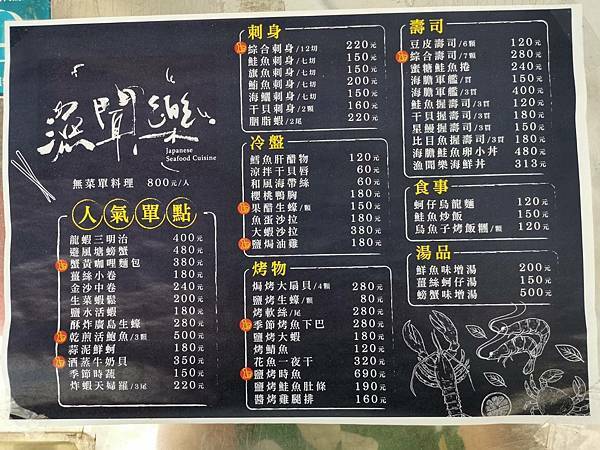 漁聞樂
Japanese
Seafood Cuisine
無菜單料理 800元/人
人氣單點
龍蝦三明治 400元
避風塘螃蟹 480元
蟹黃咖哩麵包 380元
薑絲小卷 180元
金沙中卷 240元
生菜蝦鬆 200元
鹽水活蝦 180元
酥炸廣島生蠔 280元
乾煎活鮑魚/3顆 500元
蒜泥鮮蚵 180元
酒蒸牛奶貝 350元
季節時蔬 150元
炸蝦天婦羅/3尾 220元
刺身
綜合刺身/12切 220元
鮭魚刺身/七切 150元
旗魚刺身/七切 150元
鮪魚刺身/七切 150元
海鱺刺身/七切 150元
干貝刺身/2顆 160元
胭脂蝦/2尾 220元
冷盤
鱈魚肝醋物 120元
涼拌干貝唇 60元
和風海帶絲 60元
櫻桃鴨胸 180元
果醋生蠔/顆 150元
魚蛋沙拉 180元
大蝦沙拉 380元
鹽焗油雞 180元
烤物
焗烤大扇貝/4顆 280元
鹽烤生蠔/顆 80元
烤軟絲/尾 280元
季節烤魚下巴 280元
鹽烤大蝦 180元
烤鯖魚 120元
花魚一夜干 320元
鹽烤時魚 690元
鹽烤鮭魚肚條 190元
醬烤雞腿排 160元
壽司
豆皮壽司/6顆 120元
綜合壽司/7顆 280元
蜜糖鮭魚捲 240元
海膽軍艦/貫 150元
海膽軍艦/3貫 400元
鮭魚握壽司/3貫 120元
干貝握壽司/3貫 180元
星鰻握壽司/3貫 150元
比目魚握壽司/3貫 180元
海膽鮭魚卵小丼 480元
漁聞樂海鮮丼 313元
食事
蚵仔烏龍麵 120元
鮭魚炒飯 150元
烏魚子烤飯糰/顆 120元
湯品
鮮魚味增湯 200元
薑絲蚵仔湯 150元
螃蟹味增湯 500元